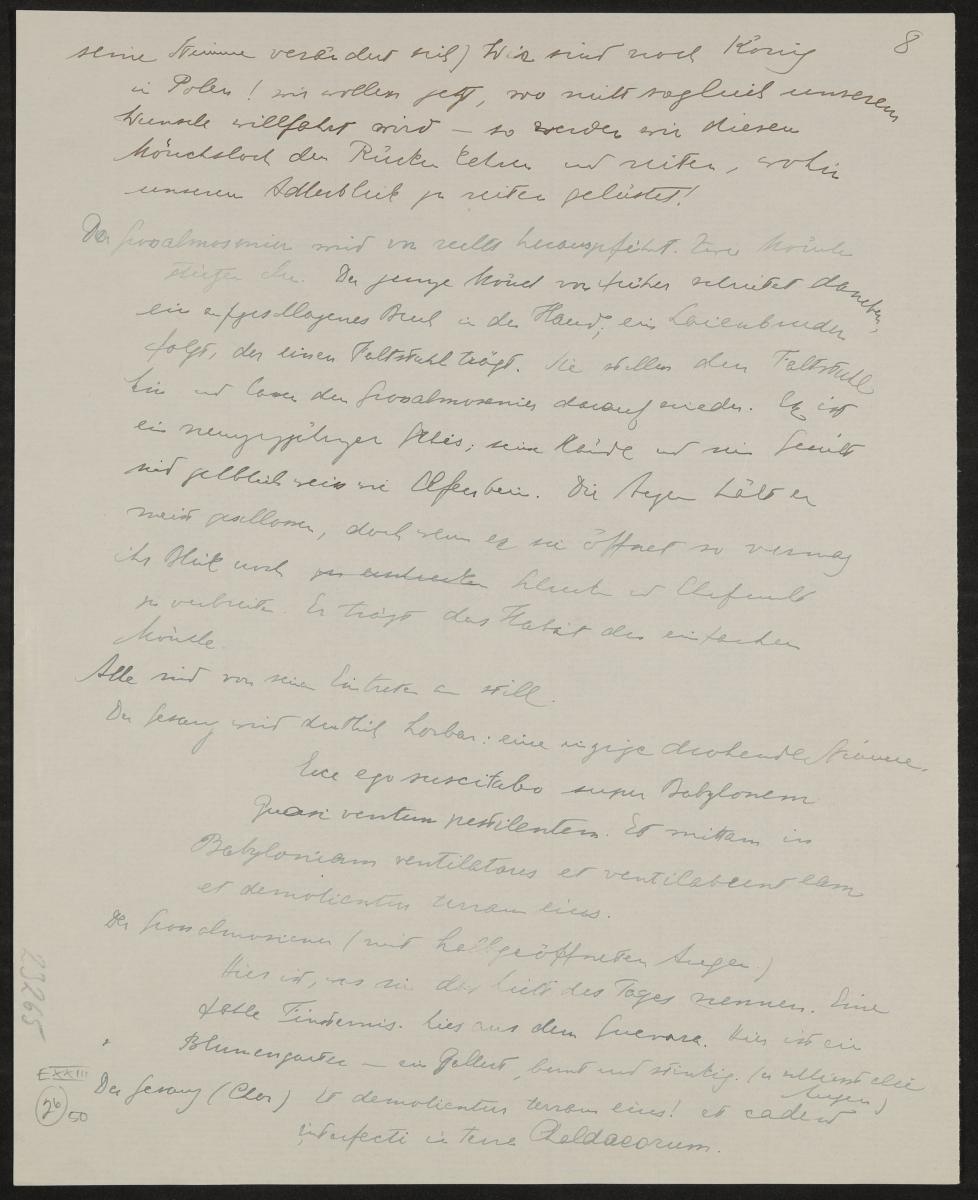 8
seine Stimme verändert sich) Wir sind noch König
in Polen! wir wollen jetzt, wo nicht sogleich unserem
Wunsche willfahrt wird – so werden wir diesem
Mönchsloch den Rücken kehren und reiten, wohin
unserem Adlerblick zu reiten gelüstet!
Der Grossalmosenier wird von rechts herausgeführt. Zwei Mönche
stützen ihn. Der junge Mönch von früher schreitet daneben,
ein aufgeschlagenes Buch in der Hand; ein Laienbruder
folgt, der einen Faltstuhl trägt. Sie stellen den Faltstuhl
hin und lassen den Grossalmosenier darauf nieder. Er ist
ein neunzigjähriger Greis; seine Hände und sein Gesicht
sind gelblich weiss wie Elfenbein. Die Augen hält er
meist geschlossen, doch wenn er sie öffnet so vermag
ihr Blick noch Schrecken und Ehrfurcht
zu verbreiten. Er trägt das Habit der einfachen
Mönche.
Alle sind von seinem Eintreten an still.
Der Gesang wird deutlich hörbar: eine einzige drohende Stimme.
Ecce ego suscitabo super Babylonem
Quasi ventum pestilentem. Et mittam in
Babyloniam ventilatores et ventilabunt eam
et demolientur terram eius.
Der Grossalmosenier (mit halbgeöffneten Augen.)
Hier ist, was sie das Licht des Tages nennen. Eine
fahle Finsternis. Lies aus dem Guevara. Hier ist ein
Blumengarten – ein, bunt und stinkig. (er schliesst die
Augen)
Der Gesang (Chor) Et demolientur terram eius! et cadent
interfecti in terra Chaldaeorum.
23265
E XXIII
26
50